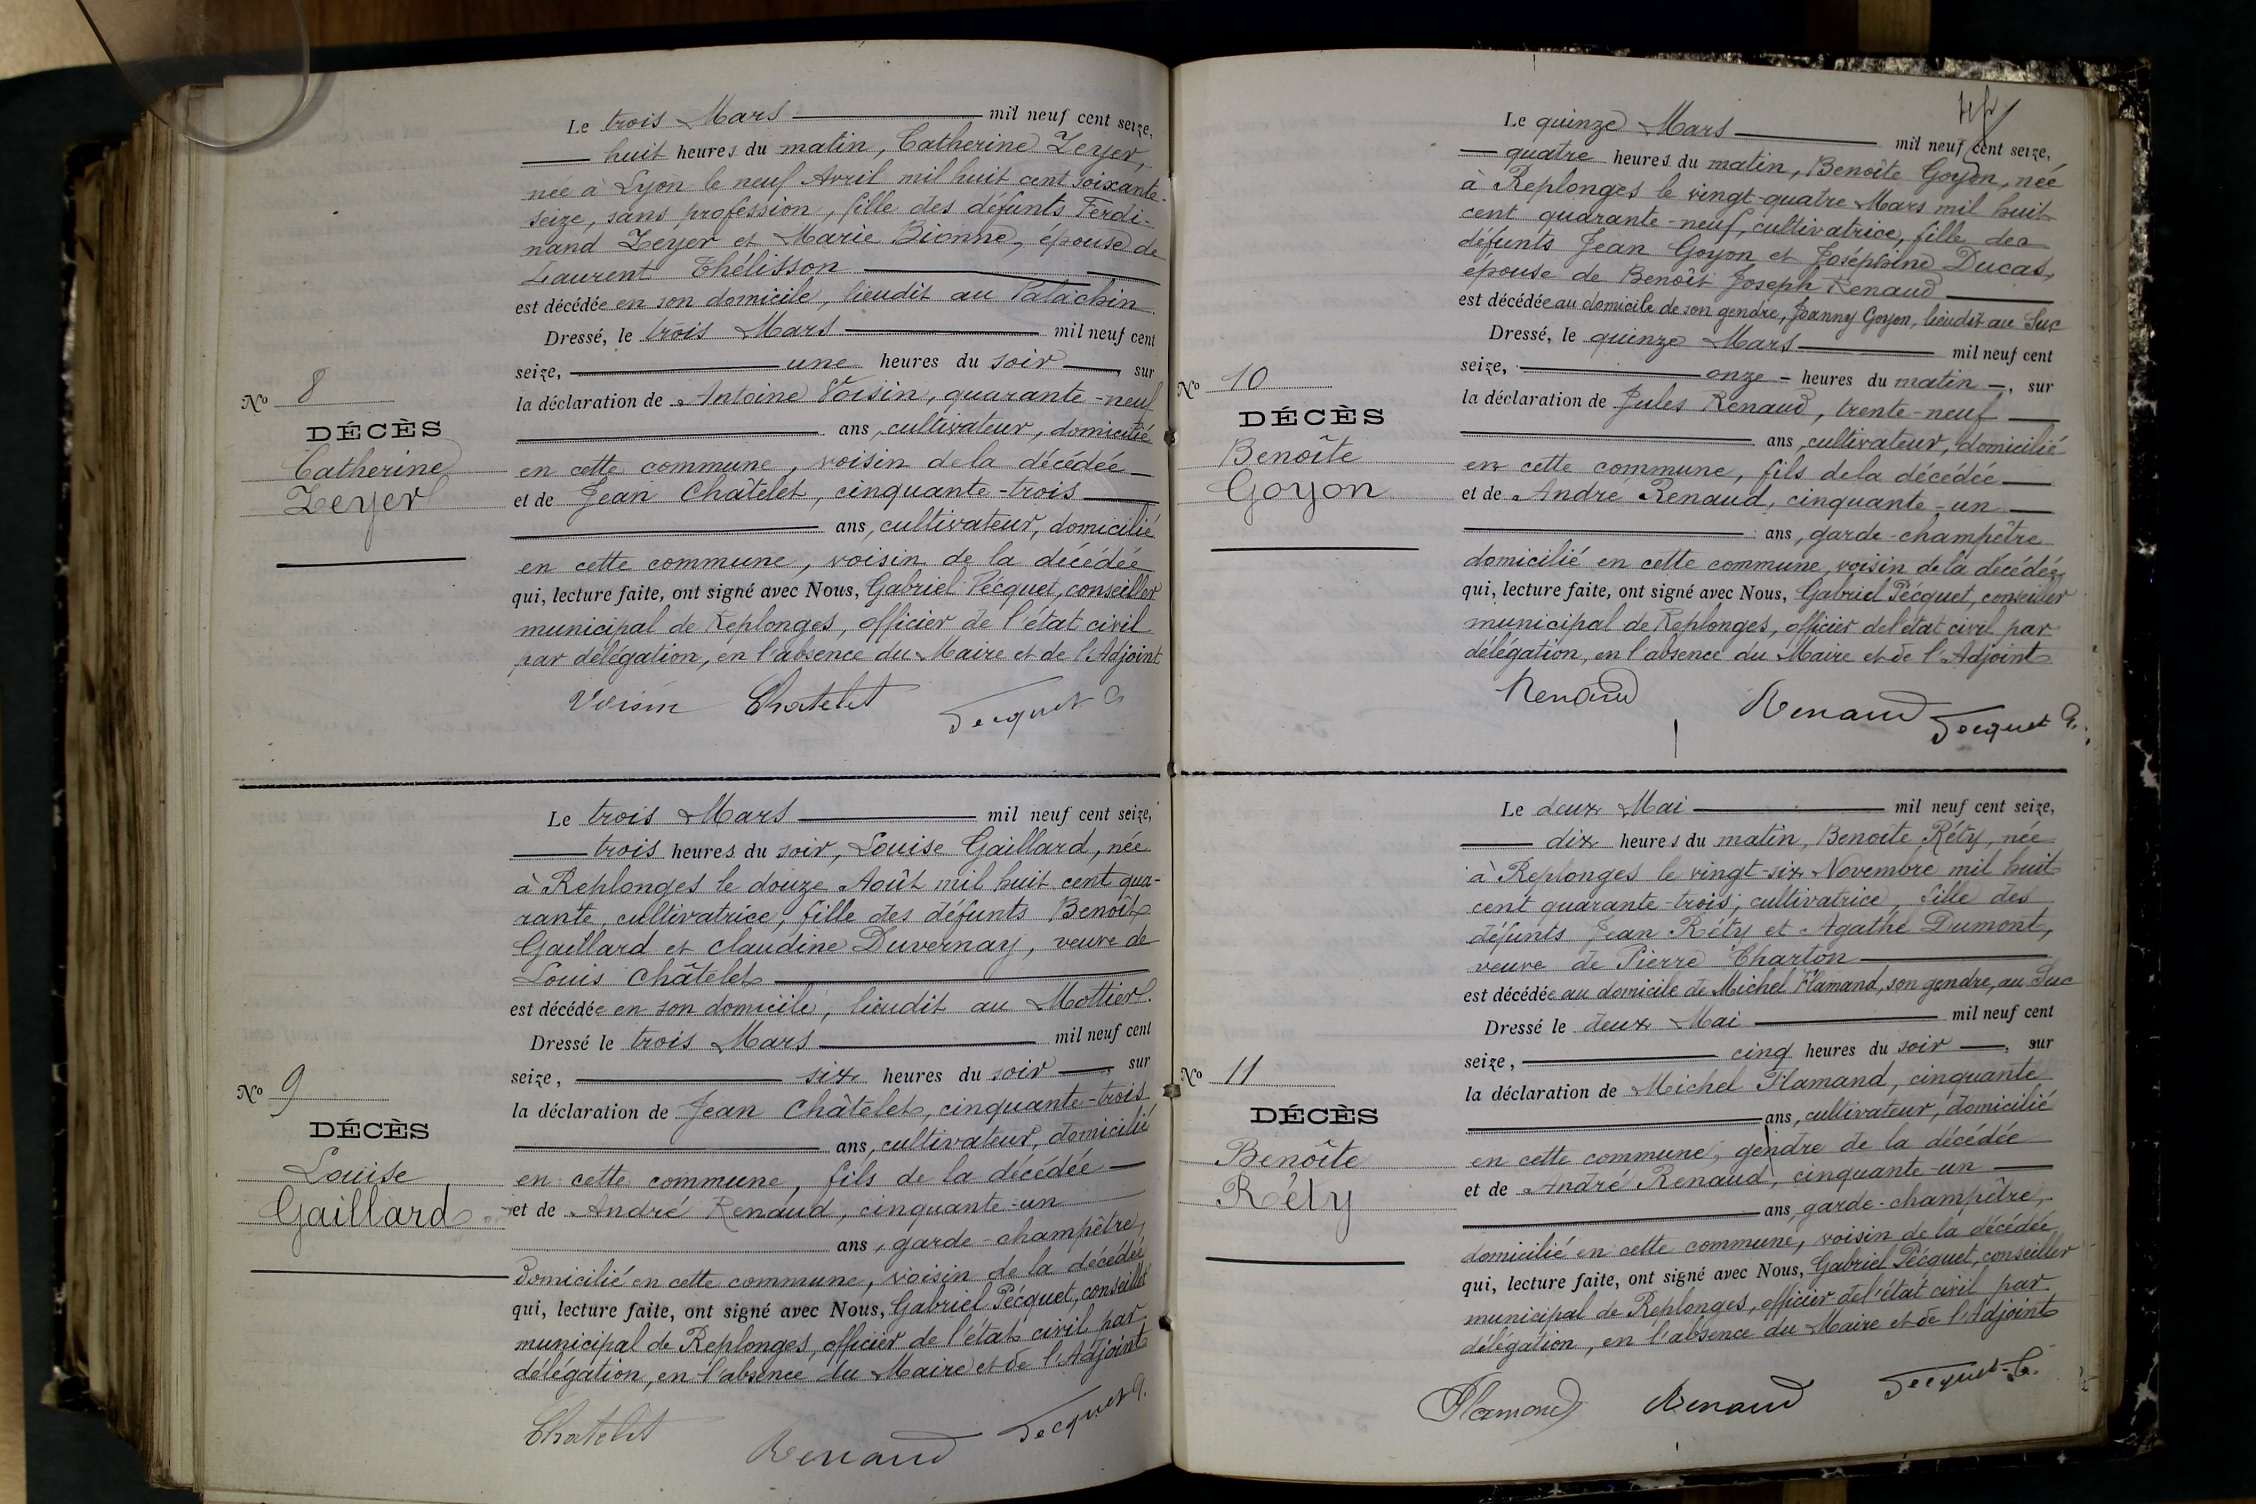 Le trois Mars mil neuf cent seize,
huit heures du matin, Catherine Zeyer,
née à Lyon le neuf Avril mil huit cent soixante-
seize, sans profession, fille des défunts Ferdi-
nand Zeyer et Marie Bionne, épouse de
Laurent Thélisson
est décédée en son domicile, lieudit au Palachin
Dressé, le trois Mars mil neuf cent
seize, une heures du soir, sur
la déclaration de Antoine Voisin, quarante-neuf
ans, cultivateur, domicilié
en cette commune, voisin de la décédée
et de Jean Châtelet, cinquante-trois
ans, cultivateur, domicilié
en cette commune, voisin de la décédée
qui, lecture faite, ont signé avec Nous, Gabriel Pécquet, conseiller
municipal de Replonges, officier de l'état civil
par délégation, en l'absence du Maire et de l'Adjoint
Voisin Chatelet Pecquet G
No 8
DÉCÈS
Catherine
Zeyer
Le trois Mars mil neuf cent seize,
trois heures du soir, Louise Gaillard, née
à Replonges le douze Août mil huit cent qua-
rante, cultivatrice, fille des défunts Benoît
Gaillard et Claudine Duvernay, veuve de
Louis Châtelet
est décédée en son domicile, lieudit au Mottier.
Dressé le trois Mars mil neuf cent
seize, six heures du soir, sur
la déclaration de Jean Châtelet, cinquante-trois
ans, cultivateur, domicilié
en cette commune, fils de la décédée
et de André Renaud, cinquante-un
ans, garde-champêtre,
domicilié en cette commune, voisin de la décédée
qui, lecture faite, ont signé avec Nous, Gabriel Pécquet, conseiller
municipal de Replonges, officier de l'état civil par
délégation, en l'absence du Maire et de l'Adjoint
Chatelet Renaud Pecquet G.
No 9
DÉCÈS
Louise
Gaillard
Le quinze Mars mil neuf cent seize,
quatre heures du matin, Benoîte Goyon, née
à Replonges le vingt-quatre Mars mil huit
cent quarante-neuf, cultivatrice, fille des
défunts Jean Goyon et Joséphine Ducas,
épouse de Benoît Joseph Renaud
est décédée au domicile de son gendre, Joanny Goyon, lieudit au Suc
Dressé, le quinze Mars mil neuf cent
seize, onze heures du matin, sur
la déclaration de Jules Renaud, trente-neuf
ans, cultivateur, domicilié
en cette commune, fils de la décédée
et de André Renaud, cinquante-un
ans, garde-champêtre
domicilié en cette commune, voisin de la décédée,
qui, lecture faite, ont signé avec Nous, Gabriel Pécquet, conseiller
municipal de Replonges, officier de l'état civil par
délégation, en l'absence du Maire et de l'Adjoint
Renaud Renaud Pecquet G.
No 10
DÉCÈS
Benoîte
Goyon
Le deux Mai mil neuf cent seize,
dix heures du matin, Benoîte Réty, née
à Replonges le vingt-six Novembre mil huit
cent quarante-trois, cultivatrice, fille des
défunts Jean Réty et Agathe Dumont,
veuve de Pierre Charton
est décédée au domicile de Michel Flamand, son gendre, au Suc
Dressé le deux Mai mil neuf cent
seize, cinq heures du soir, sur
la déclaration de Michel Flamand, cinquante
ans, cultivateur, domicilié
en cette commune, gendre de la décédée
et de André Renaud, cinquante-un
ans, garde-champêtre,
domicilié en cette commune, voisin de la décédée
qui, lecture faite, ont signé avec Nous, Gabriel Pécquet, conseiller
municipal de Replonges, officier de l'état civil par
délégation, en l'absence du Maire et de l'Adjoint
Flamand Renaud Pecquet G.
No 11
DÉCÈS
Benoîte
Réty